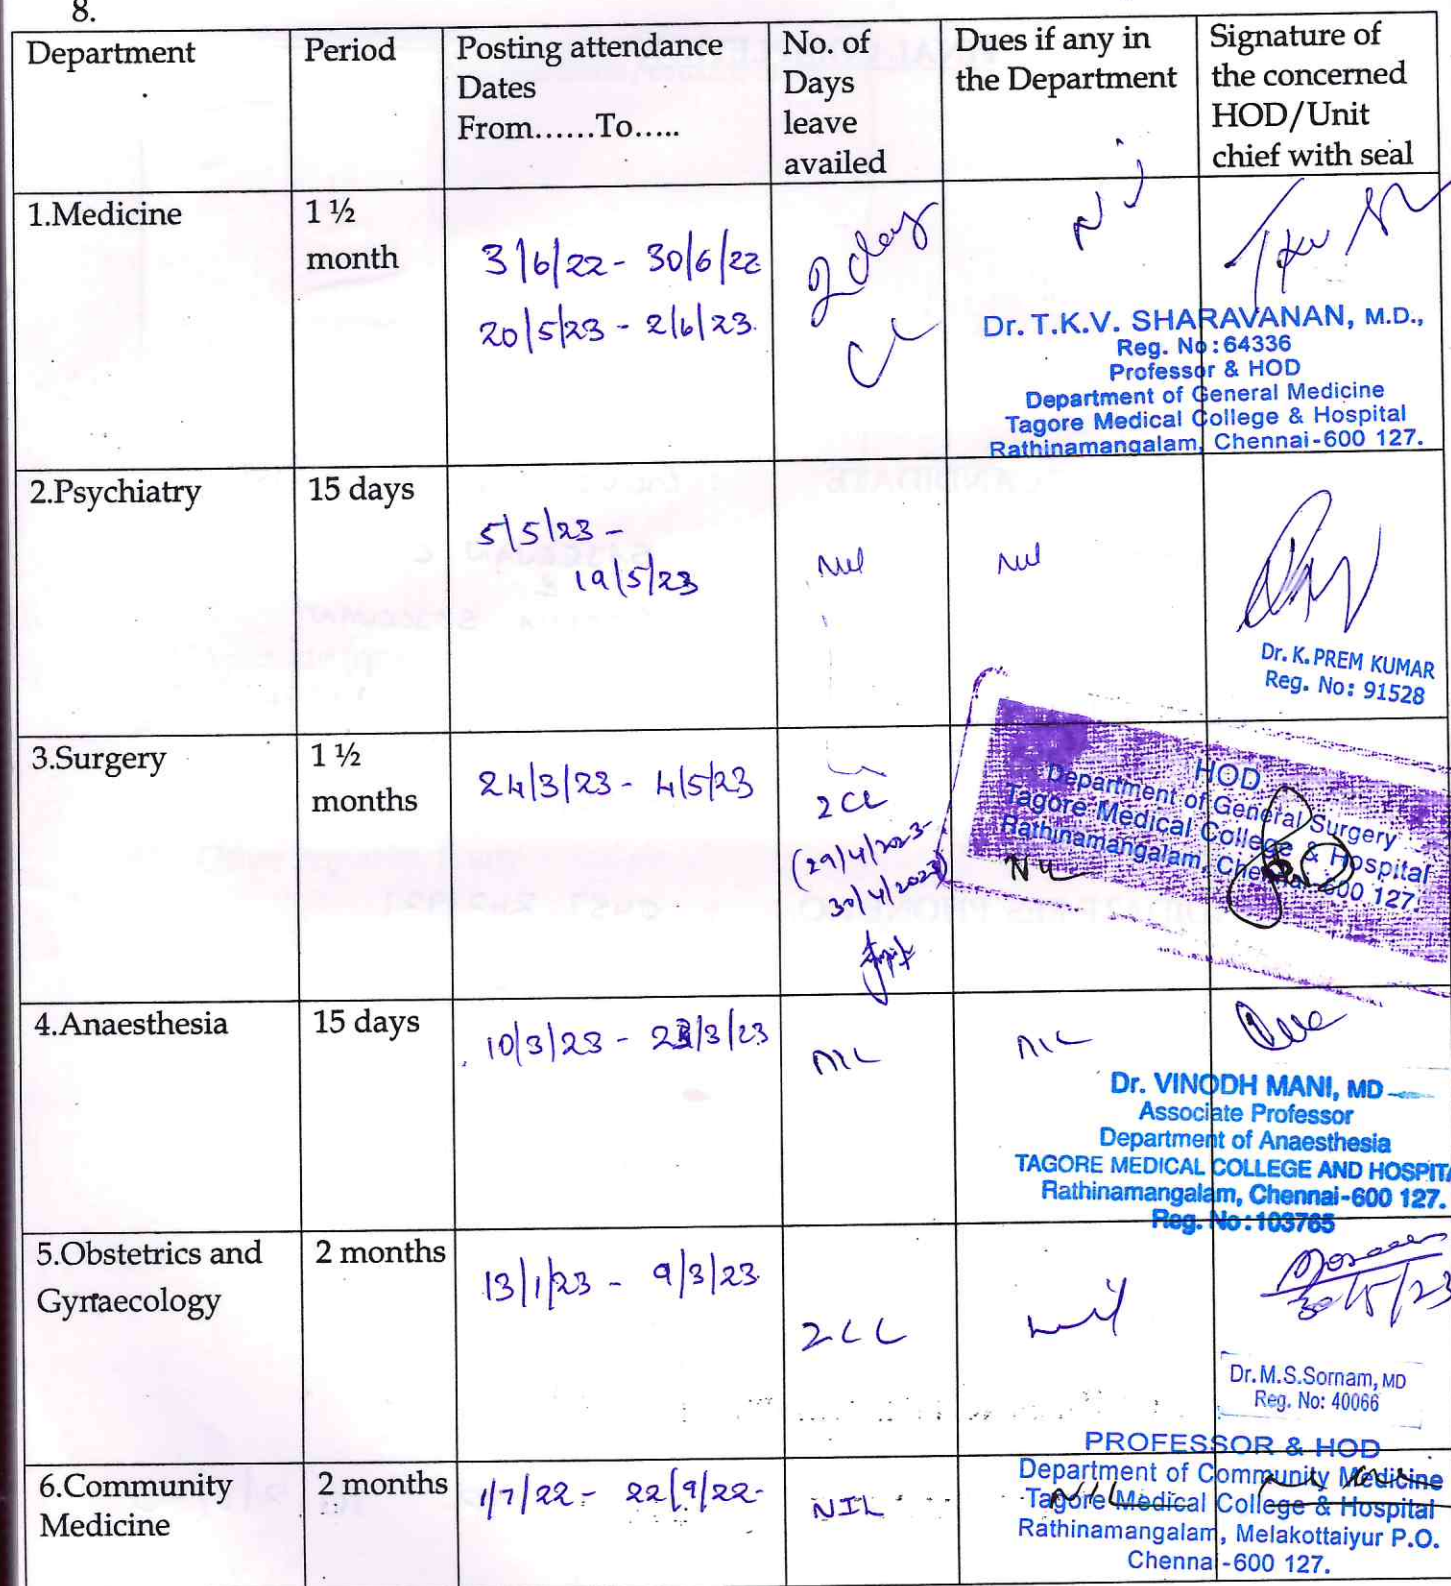 8.
Department
Period
Posting attendance
Dates
From......To.....
No. of
Days
leave
availed
Dues if any in
the Department
Signature of
the concerned
HOD/Unit
chief with seal
1.Medicine
1 ½
month
3/6/22 - 30/6/22
20/5/23 - 2/6/23.
2 days
CL
Nil
Dr. T.K.V. SHARAVANAN, M.D.,
Reg. No:64336
Professor & HOD
Department of General Medicine
Tagore Medical College & Hospital
Rathinamangalam, Chennai-600 127.
2.Psychiatry
15 days
5/5/23 -
19/5/23
Nil
Nil
Dr. K. PREM KUMAR
Reg. No: 91528
3.Surgery
1 ½
months
24/3/23 - 4/5/23
2 CL
(29/4/2023-
30/4/2023)
Nil
HOD
Department of General Surgery
Tagore Medical College & Hospital
Rathinamangalam, Chennai-600 127.
4.Anaesthesia
15 days
10/3/23 - 23/3/23
NIL
NIL
Dr. VINODH MANI, MD
Associate Professor
Department of Anaesthesia
TAGORE MEDICAL COLLEGE AND HOSPITA
Rathinamangalam, Chennai-600 127.
Reg. No:103765
5.Obstetrics and
Gynaecology
2 months
13/1/23 - 9/3/23
2 CL
Nil
30/5/23
Dr. M.S.Sornam, MD
Reg. No: 40066
6.Community
Medicine
2 months
1/7/22 - 22/9/22-
NIL
NIL
PROFESSOR & HOD
Department of Community Medicine
Tagore Medical College & Hospital
Rathinamangalam, Melakottaiyur P.O.
Chennai-600 127.